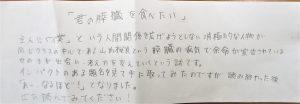 「君の膵臓を食べたい」
主人公で"僕"という人間関係を広げようとしない消極的な人物が
同じクラスの そして 山内桜良という膵臓の病気で余命が宣告されている
女の子と出会い、変わっていくという話です。
インパクトのある題名を見て手に取ってみたのですが 読み終わった後
「あ…なるほど!」となりました。
ぜひ読んでみてください!